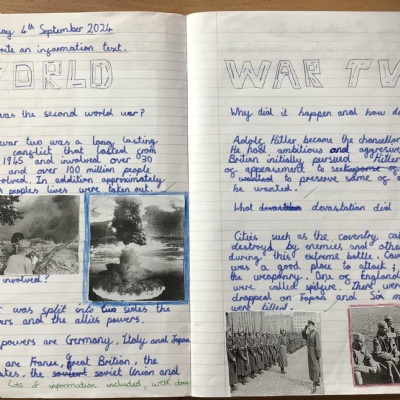 ay 4th September 2024
rite an information text.
ORLD
was the second world war?
war two was a long lasting
conflict that lasted from
1945 and involved over 30
and over 100 million people
volved. In addition approximately
peoples lives were taken out.
involved?
r was split into two sides the
ers and the allies powers.
powers are Germany, Italy and Japan
are France, Great Britian, the
ates, the soviet soviet Union and
Lots of information included, well done
WAR TW
Why did it happen and how do
Adolf Hitler became the chancellor
He had ambitious and aggressive
Britian initially pursued Hitler
of appeasement to
wanted to preserve some of
he wanted.
What devastation did
Cities such as the coventry
destroyd by enemies and othe
during this extreme battle.
was a good place to attack
the weaponry. One of England
were called spitfire. There were
dropped on Japan and Six m
were killed.